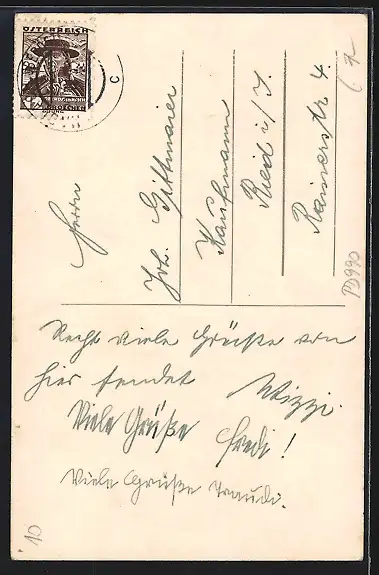 ÖSTERREICH
12
GROSCHEN
C
Herrn
Joh. Gittmaier
Kaufmann
Ried i/I.
Rainerstr. 4.
PD990
Recht viele Grüße von
hier sendet Wizzi.
Viele Grüße Fredi!
Viele Grüße Traudi.
10